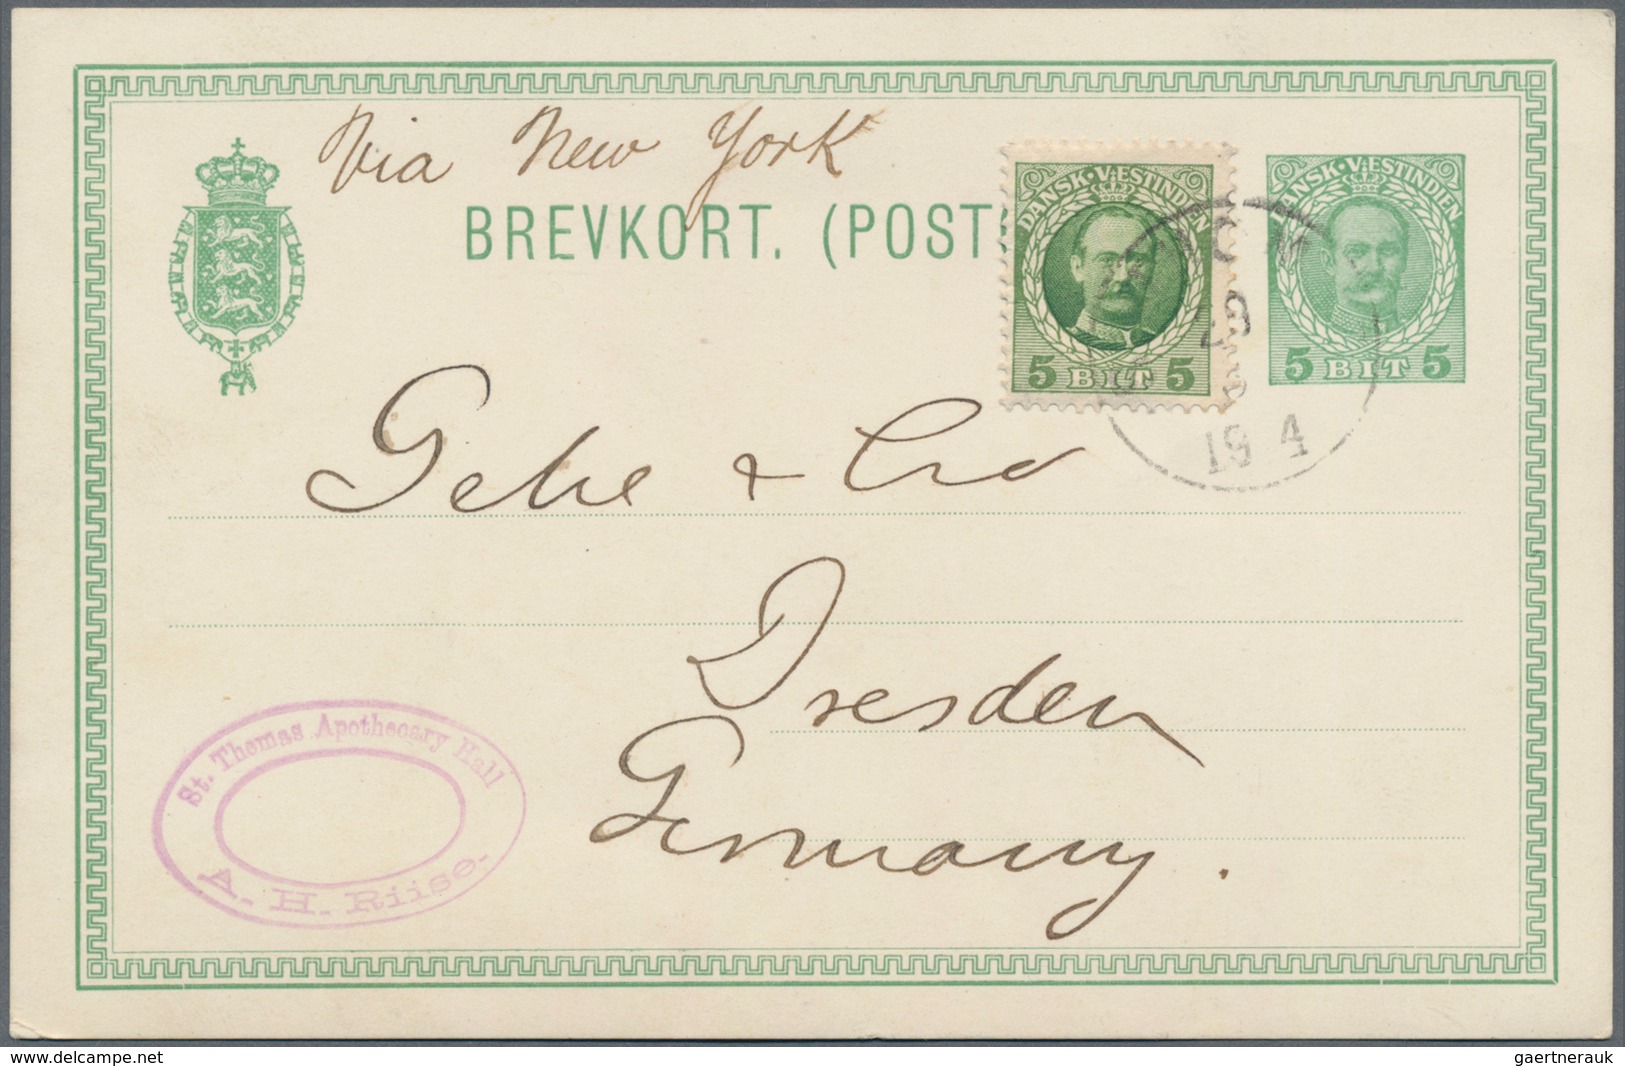 Via New York
BREVKORT. (POST
DANSK·VÆSTINDIEN
5 BIT 5
DANSK·VÆSTINDIEN
5 BIT 5
19 4
Gehe & Co
Dresden
Germany.
St. Thomas Apothecary Hall
A. H. Riise.
www.delcampe.net
gaertnerauk